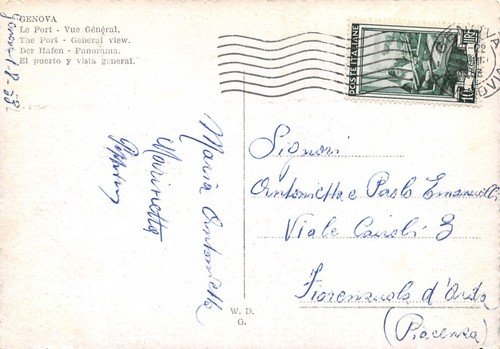 GENOVA
Le Port - Vue Général.
The Port - General view.
Der Hafen - Panorama.
El puerto y vista general.
POSTE ITALIANE
GENOVA
Maria Antonietta
Marinetta
Signori
Antonietta e Paolo Emanuelli
Viale Cairoli 3
Fiorenzuola d'Arda
(Piacenza)
W. D.
G.